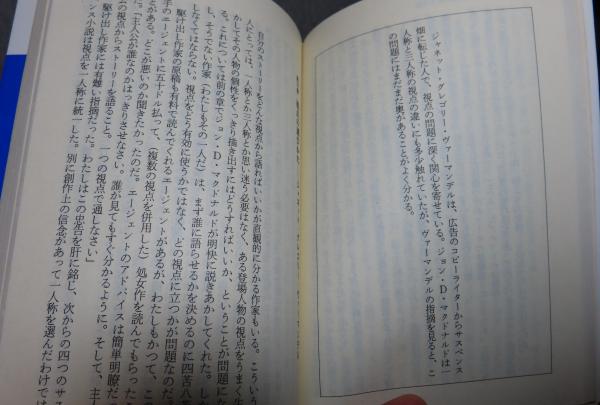 ジャネット・グレゴリー・ヴァーマンデルは、広告のコピーライターからサスペンス
畑に転じた人で、視点の問題に深く関心を寄せている。ジョン・D・マクドナルドは一
人称と三人称の視点の違いにも多少触れていたが、ヴァーマンデルの指摘を見ると、こ
の問題にはまだまだ奥があることがよく分かる。
自分のストーリーをどんな視点から語ればいいかが直観的に分かる作家もいる。こういう
人にとっては、一人称とか三人称とか思い迷う必要はなく、ある登場人物の視点をうまく生
かしてその人物の個性をくっきり描き出すにはどうすればいいか、ということが問題にな
る。これについては前の章でジョン・D・マクドナルドが明快に説きあかしてくれた。しか
し、そうでない作家（わたしもその一人だ）は、まず誰に語らせるかを決めるのに四苦八
しなくてはならない。視点をどう有効に使うかではなく、どの視点に立つかが問題なのだ
駆け出し作家の原稿も有料で読んでくれるエージェントがあるが、わたしもかつて、こ
手のエージェントに五十ドル払って、（複数の視点を併用した）処女作を読んでもらったこ
とがある。どこが悪いのか聞きたかったのだ。エージェントのアドバイスは簡単明瞭だ
た。「主人公が誰なのかはっきりさせなさい。誰が見てもすぐ分かるように。そして、主人
の視点からストーリーを語ること。一つの視点で通しなさい」
駆け出し作家には有難い指摘だった。わたしはこの忠告を肝に銘じ、次からの四つのサス
ペンス小説は視点を一人称に統一した。別に創作上の信念があって一人称を選んだわけでは